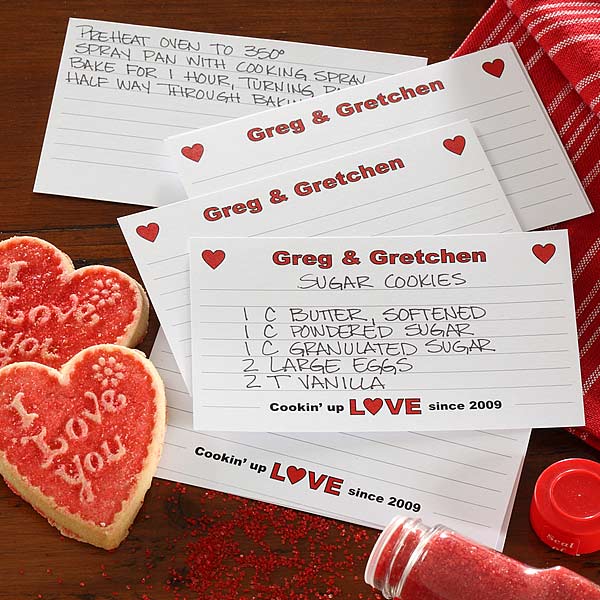 PREHEAT OVEN TO 350°
SPRAY PAN WITH COOKING SPRAY
BAKE FOR 1 HOUR, TURNING
HALF WAY THROUGH
Greg & Gretchen
Greg & Gretchen
Greg & Gretchen
SUGAR COOKIES
1 C BUTTER, SOFTENED
1 C POWDERED SUGAR
1 C GRANULATED SUGAR
2 LARGE EGGS
2 T VANILLA
Cookin' up LOVE since 2009
Cookin' up LOVE since 2009
I
Love
you
I
Love
you
Seal